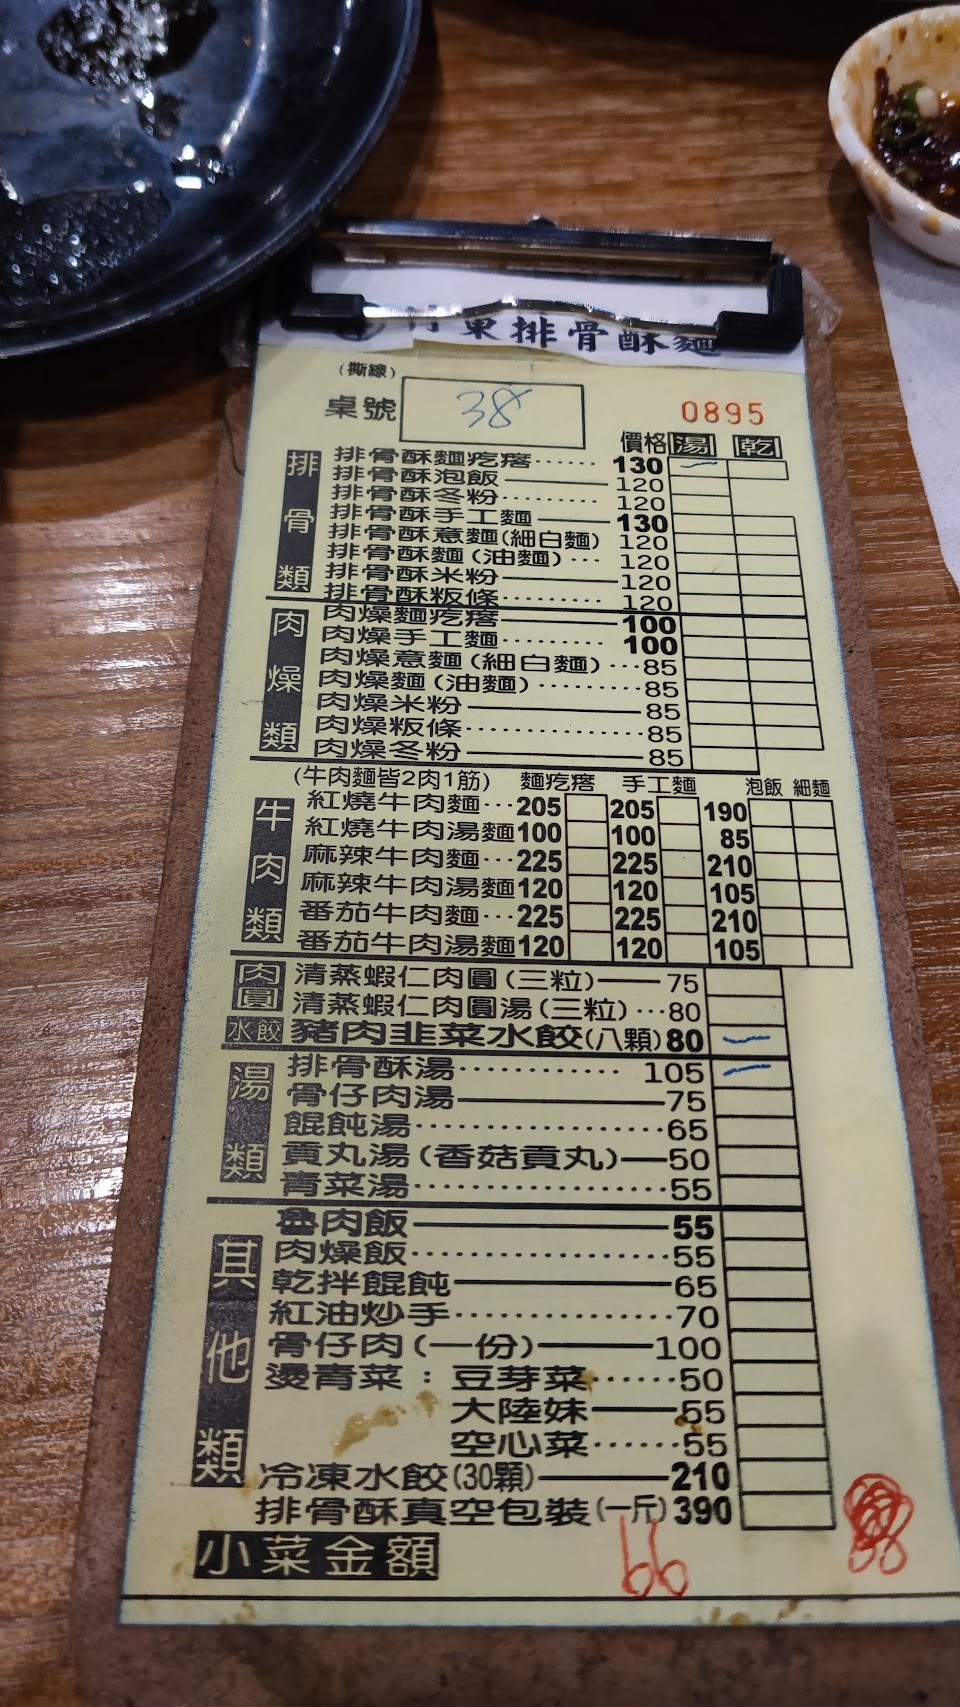 竹東排骨酥麵
(撕線)
桌號 38 0895
價格 湯 乾
排骨類
排骨酥麵疙瘩······130 一
排骨酥泡飯—120
排骨酥冬粉·········120
排骨酥手工麵—130
排骨酥意麵(細白麵) 120
排骨酥麵(油麵)···120
排骨酥米粉—120
排骨酥粄條·········120
肉燥類
肉燥麵疙瘩—100
肉燥手工麵·········100
肉燥意麵(細白麵)···85
肉燥麵(油麵)·········85
肉燥米粉—85
肉燥粄條···············85
肉燥冬粉—85
牛肉類
(牛肉麵皆2肉1筋) 麵疙瘩 手工麵 泡飯 細麵
紅燒牛肉麵···205 205 190
紅燒牛肉湯麵100 100 85
麻辣牛肉麵···225 225 210
麻辣牛肉湯麵120 120 105
番茄牛肉麵···225 225 210
番茄牛肉湯麵120 120 105
肉圓
清蒸蝦仁肉圓(三粒)—75
清蒸蝦仁肉圓湯(三粒)···80
水餃 豬肉韭菜水餃(八顆)80 一
湯類
排骨酥湯············105 一
骨仔肉湯—75
餛飩湯··················65
貢丸湯(香菇貢丸)—50
青菜湯··················55
其他類
魯肉飯—55
肉燥飯··················55
乾拌餛飩—65
紅油炒手···············70
骨仔肉(一份)—100
燙青菜：豆芽菜······50
大陸妹—55
空心菜······55
冷凍水餃(30顆)—210
排骨酥真空包裝(一斤)390
小菜金額 66